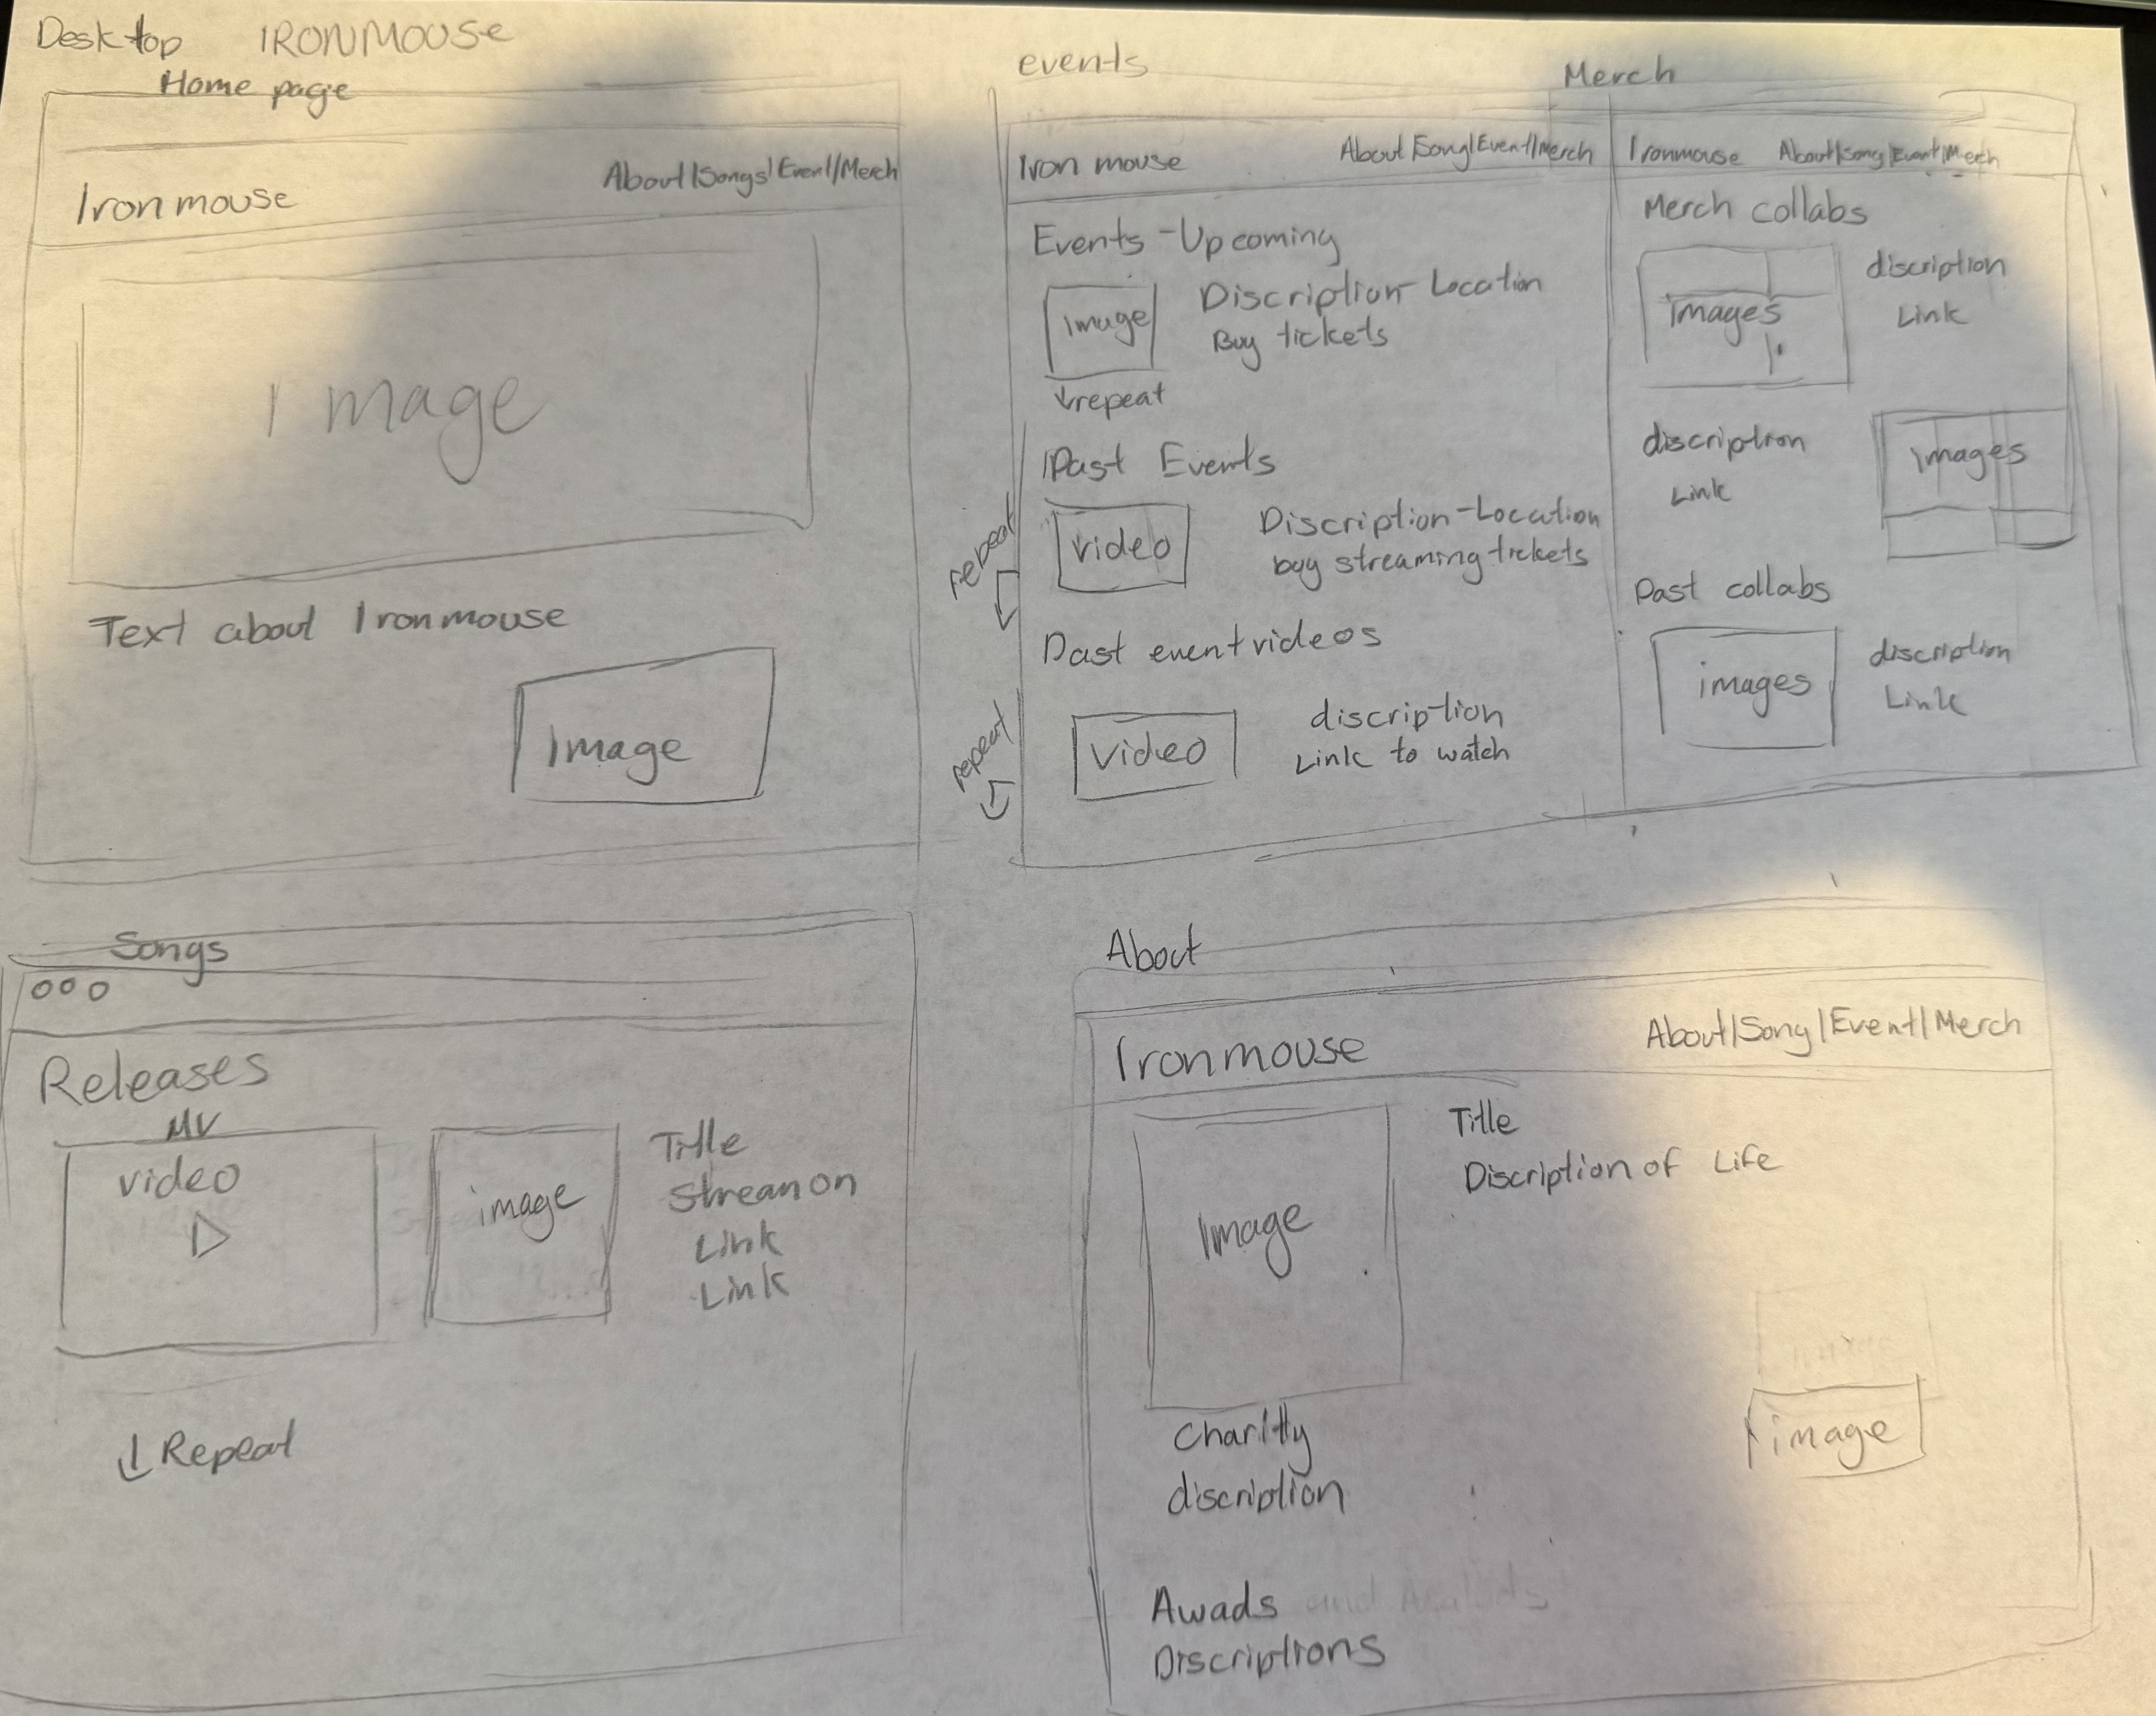 Desktop IRONMOUSE
Home page
Iron mouse About|Songs|Event|Merch
Image
Text about Ironmouse
Image
events
Iron mouse About|Song|Event|Merch
Events - Upcoming
Image
Discription - Location
Buy tickets
repeat
Past Events
repeat
video
Discription - Location
buy streaming tickets
Past event videos
repeat
video
discription
Link to watch
Merch
Ironmouse About|Song|Event|Merch
Merch collabs
images
discription
Link
discription
Link
images
Past collabs
images
discription
Link
Songs
Releases
MV
video
image
Title
Strean on
Link
Link
Repeat
About
Ironmouse About|Song|Event|Merch
Image
Title
Discription of Life
image
Charitly
discription
Awads
Discriptions